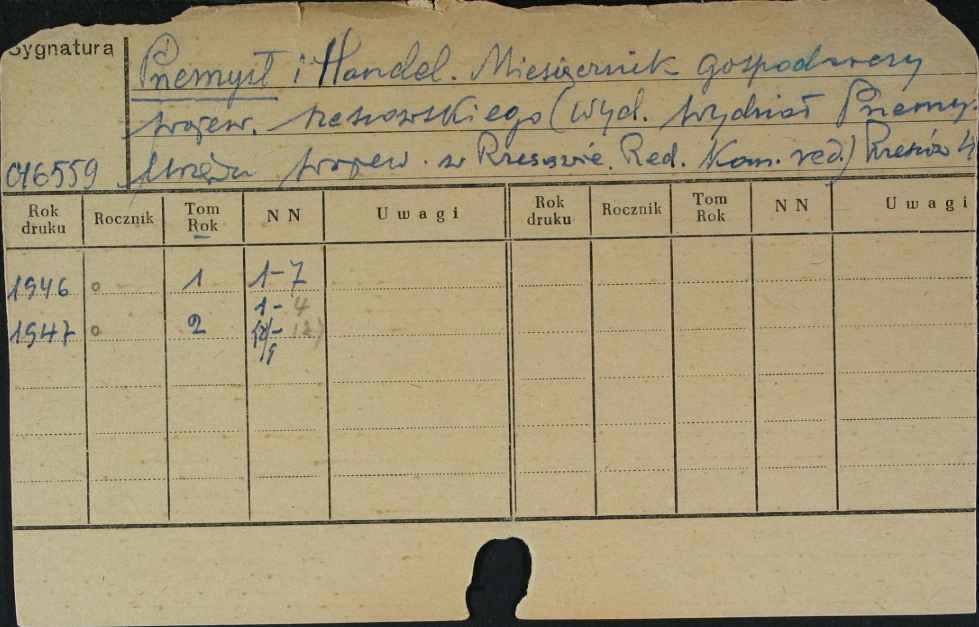 Sygnatura
Przemysł i Handel. Miesięcznik gospodarczy
wojew. rzeszowskiego (Wyd. Wydział Przemy.
C16559 Urzędu Wojew. w Rzeszowie. Red. Kom. red.) Rzeszów 4
Rok druku Rocznik Tom Rok NN Uwagi Rok druku Rocznik Tom Rok NN Uwagi
1946 o 1 1-7
1-4
1947 o 2